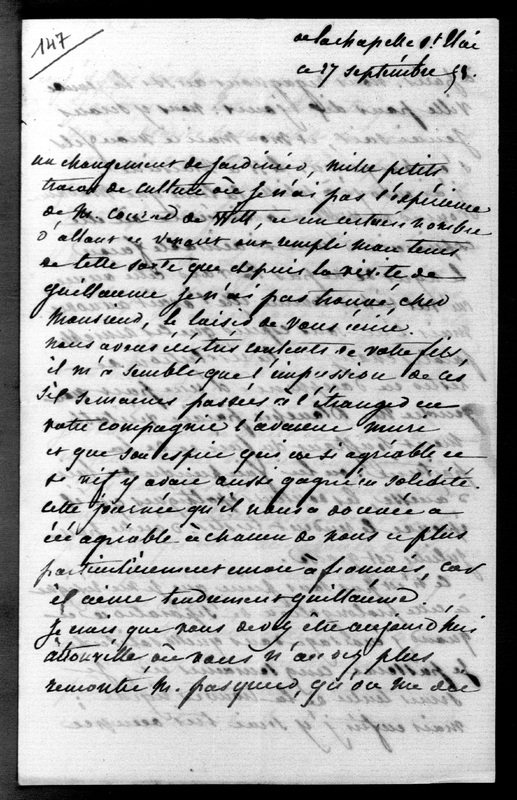 147
de la chapelle St Elói
ce 27 septembre 58.
un changement de jardinier, mille petits
travaux de culture où je n'ai pas l'expérience
de Mr. Conrad de Witt, et un certain nombre
d'allant et venant ont rempli mon tems
de telle sorte que depuis la visite de
guillaume je n'ai pas trouvé cher
Monsieur, le loisir de vous écrire.
nous avons été tres contents de votre fils
il m'a semblé que l'impression de ces
six semaines passées à l'étranger en
votre compagnie l'avaient muri
et que son esprit qui est si agréable et
si vif y avait aussi gagné en solidité.
cette journée qu'il nous a donnée a
été agréable à chacun de nous et plus
particulièrement encore à françois, car
il aime tendrement guillaume.
je crois que vous devez être aujourd'hui
à trouville où vous n'aurez plus
rencontré Mr. pasquier, qu'on me dit